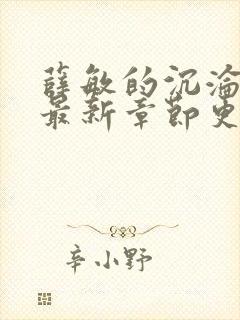 薛敏的沉沦
最新章节更
辛小野